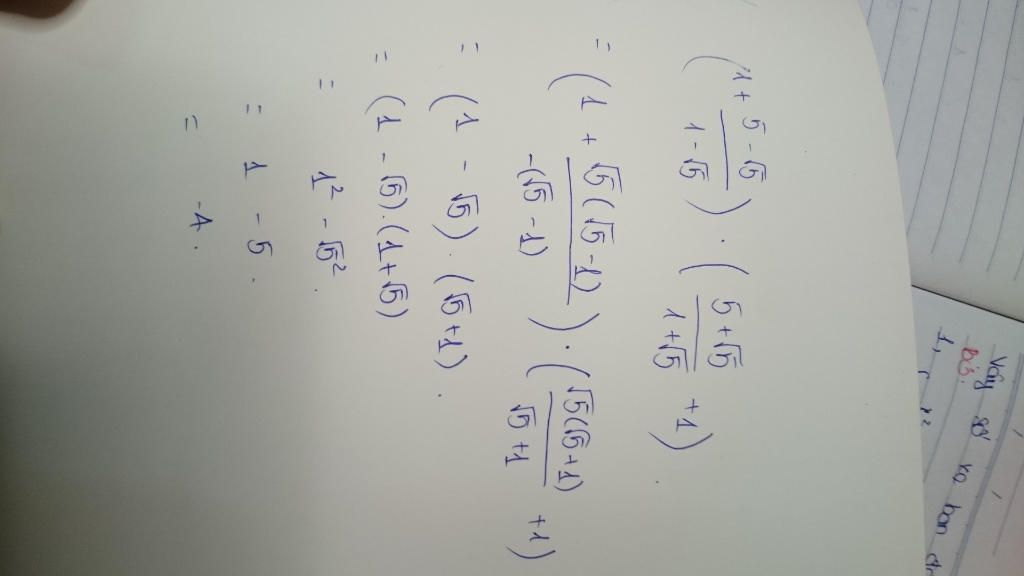 (1 + \frac{5 - √5}{1 - √5}) . (\frac{5 + √5}{1 + √5} + 1) .
= (1 + \frac{√5(√5 - 1)}{-(√5 - 1)}) . (\frac{√5(√5 + 1)}{√5 + 1} + 1)
= (1 - √5) . (√5 + 1) .
= (1 - √5) . (1 + √5)
= 1² - √5² .
= 1 - 5 .
= -4 .
Vậy số xo ban
B3.
1,